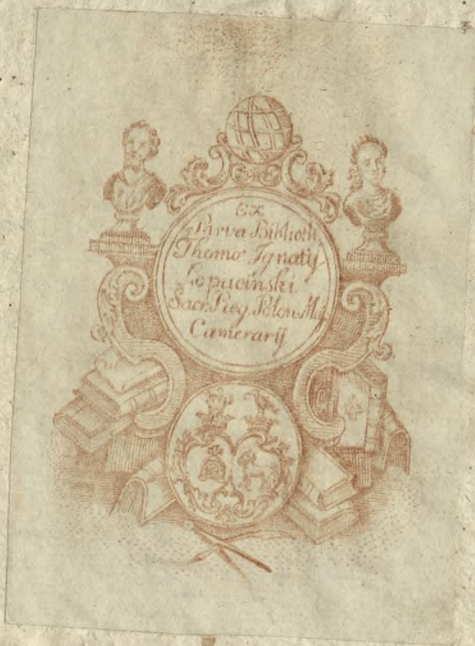 Ex
Parva Biblioth
Thomæ Ignatij
Łopaciński
Sacr. Reg. Polon. Mtj
Camerarij